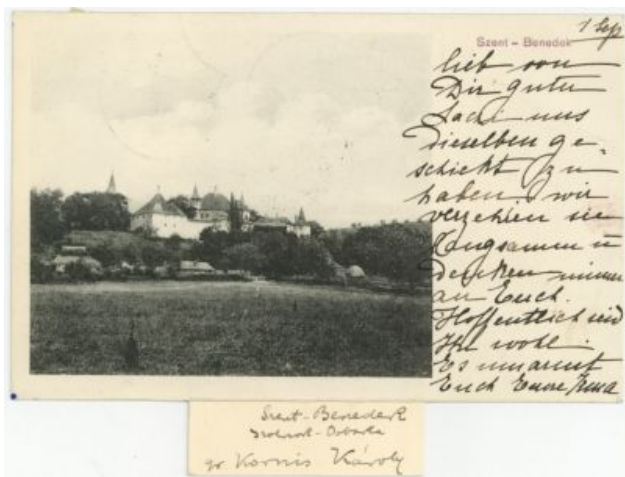 1 Sep
Szent - Benedek
lieb von
Dir guter
Sachi uns
dieselben ge-
schickt zu
haben wir
verzehren sie
langsamm u
denken immer
an Euch.
Hoffentlich seid
Ihr wohl.
Es umarmt
Euch Eure Irma
Szent-Benedek
Szolnok-Doboka
gr. Kornis Károly